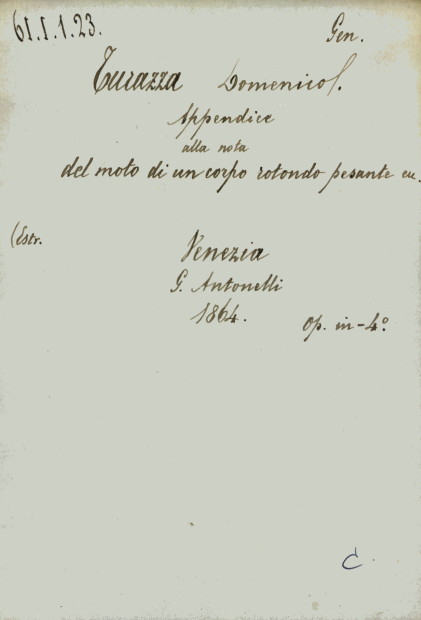 61.I.1.23. Gen.
Turazza Domenico.
Appendice
alla nota
del moto di un corpo rotondo pesante ec.
(Estr.
Venezia
G. Antonelli
1864. Op. in-4º.
C